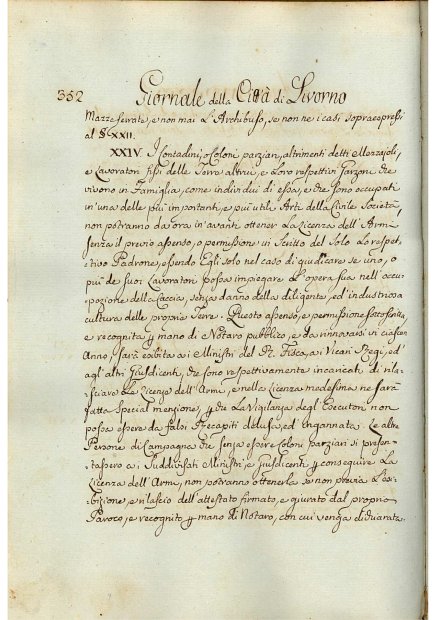 352 Giornale della Città di Livorno
Mazze ferrate, e non mai L'Archibuso, se non ne i casi sopraespressi
al § XXII.
XXIV. I Contadini, o Coloni parziarj, altrimenti detti Mezzajoli,
e Lavoratori fissi delle Terre altrui, e Loro respettivi Garzoni che
vivono in Famiglia, come individui di essa, e che sono occupati
in una delle più importanti, e più utili Arti della Civile Società,
non potranno da ora in avanti ottener La Licenza dell'Armi
senza il previo assenso, o permissione in Scritto del Solo Lo respet,
tivo Padrone, essendo Egli solo nel caso di giudicare se uno, o
più de suoi Lavoratori possa impiegare L'opera sua nell'occu,
pazione della Caccia, senza danno della diligente, ed industriosa
cultura delle proprie Terre. Questo assenso, e permissione sottoscritta,
e recognita p mano di Notaro pubblico, e da rinnovarsi in ciascun
Anno, sarà esibita a i Ministri del R. Fisco, a i Vicarj Regj, ed
agl'altri Giusdicenti, che sono respettivamente incaricati di rila,
sciare Le Licenze dell'Armi, e nella Licenza medesima ne sarà
fatta special menzione, p che La Vigilanza degl'Esecutori non
possa essere da falsi Recapiti delusa, ed ingannata. Le altre
Persone di Campagna che senza essere Coloni parziarj si presen,
tassero a i suddivisati Ministri, e Giusdicenti p conseguire La
Licenza dell'Armi, non potranno ottenerla se non previa L'esi,
bizione, e rilascio dell'attestato firmato, e giurato dal proprio
Paroco, e recognito p mano di Notaro, con cui venga dichiarata